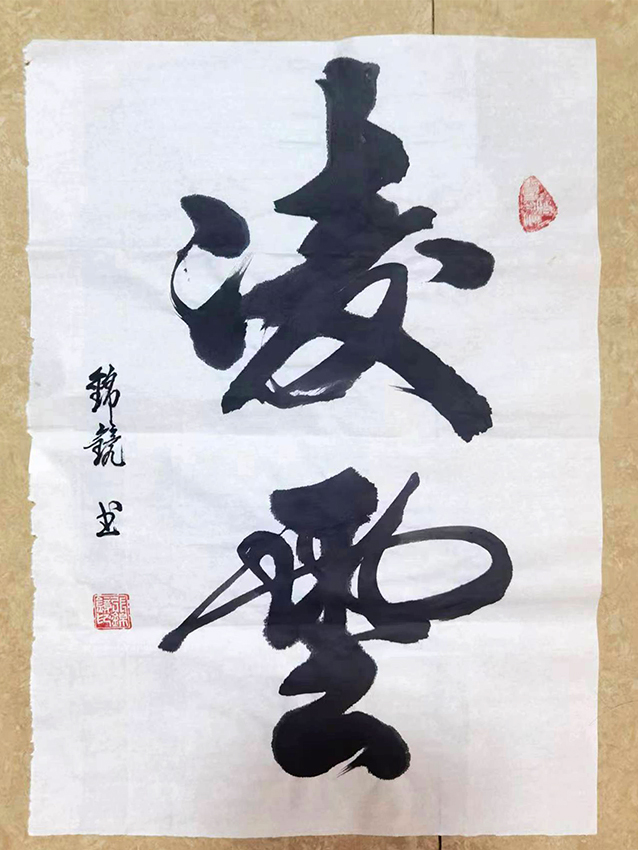 凌雲
錦鏡 书